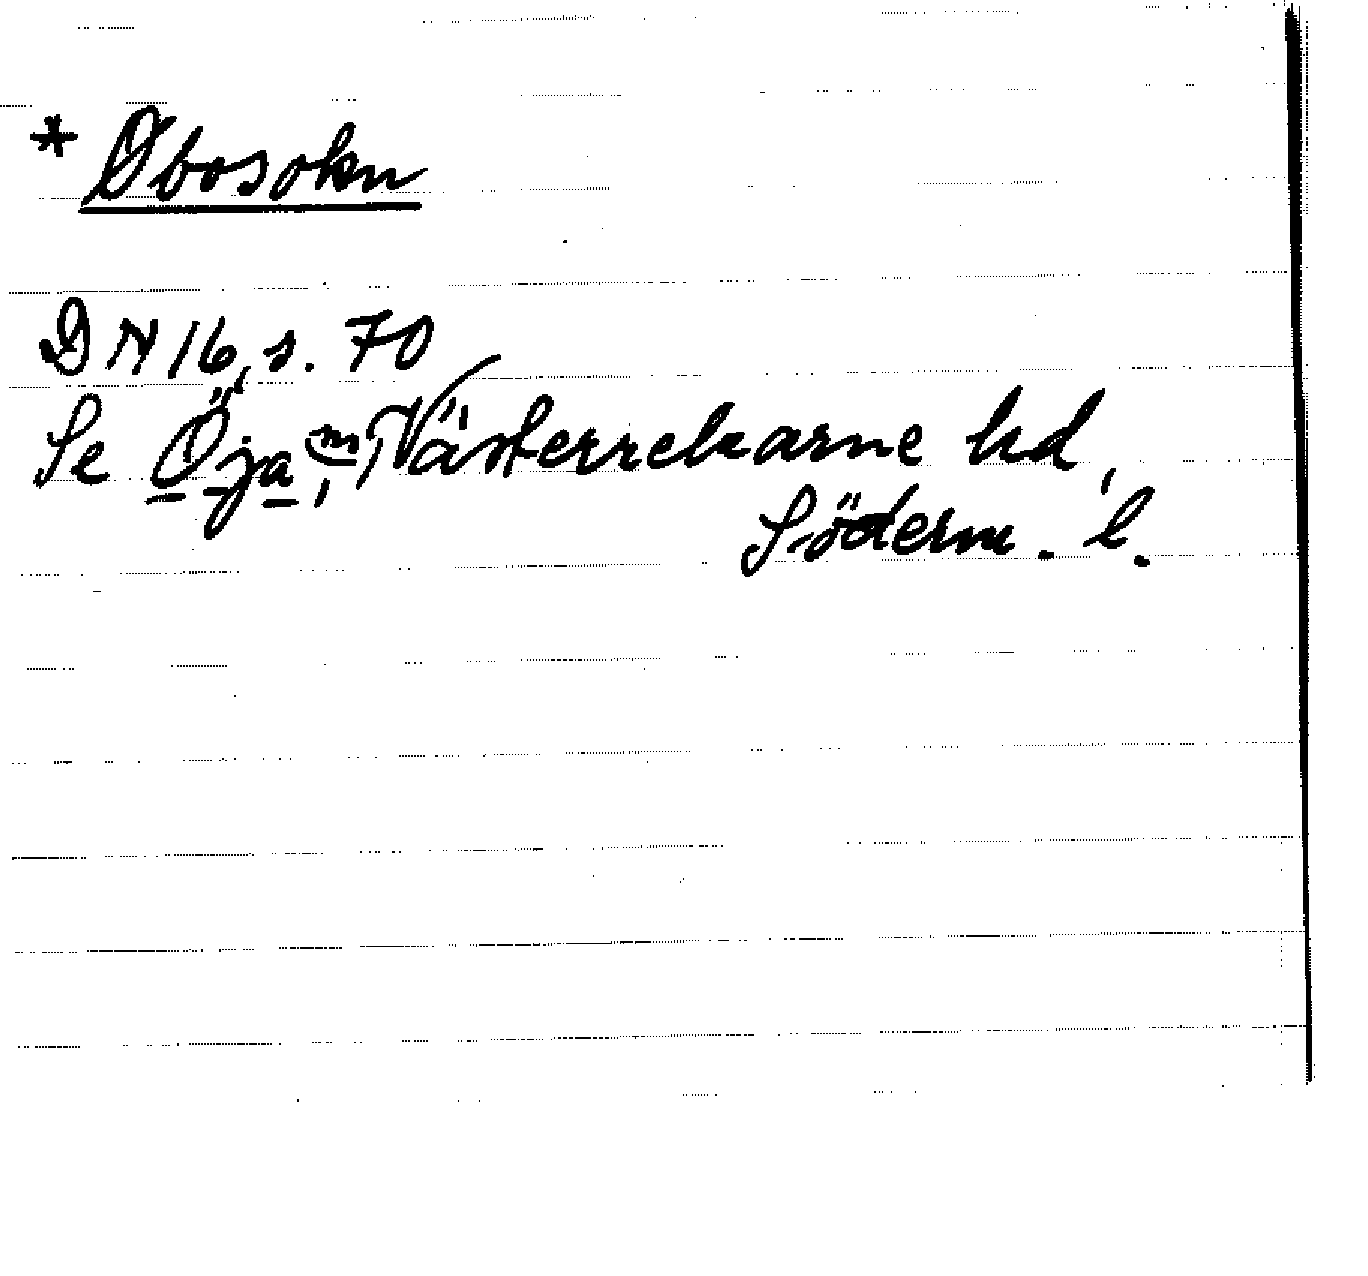 * Øbosokn
DN 16, s. 70
Se Öja sn, Västerrekarne hd,
Söderm. l.